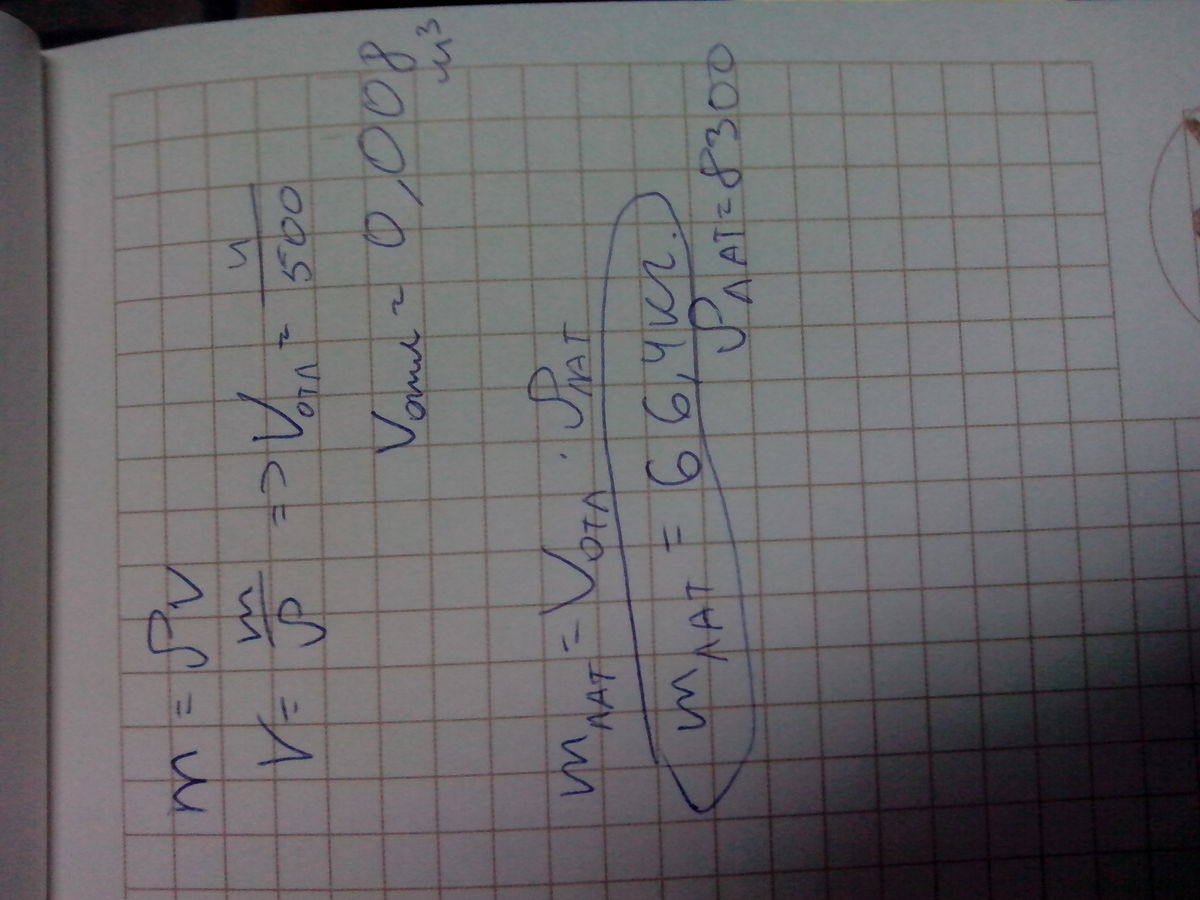 m = ρV
V = m/ρ => Vотл = 4/500
Vотл = 0,008 м³
mЛАТ = Vотл · ρЛАТ
mЛАТ = 66,4 кг.
ρЛАТ = 8300